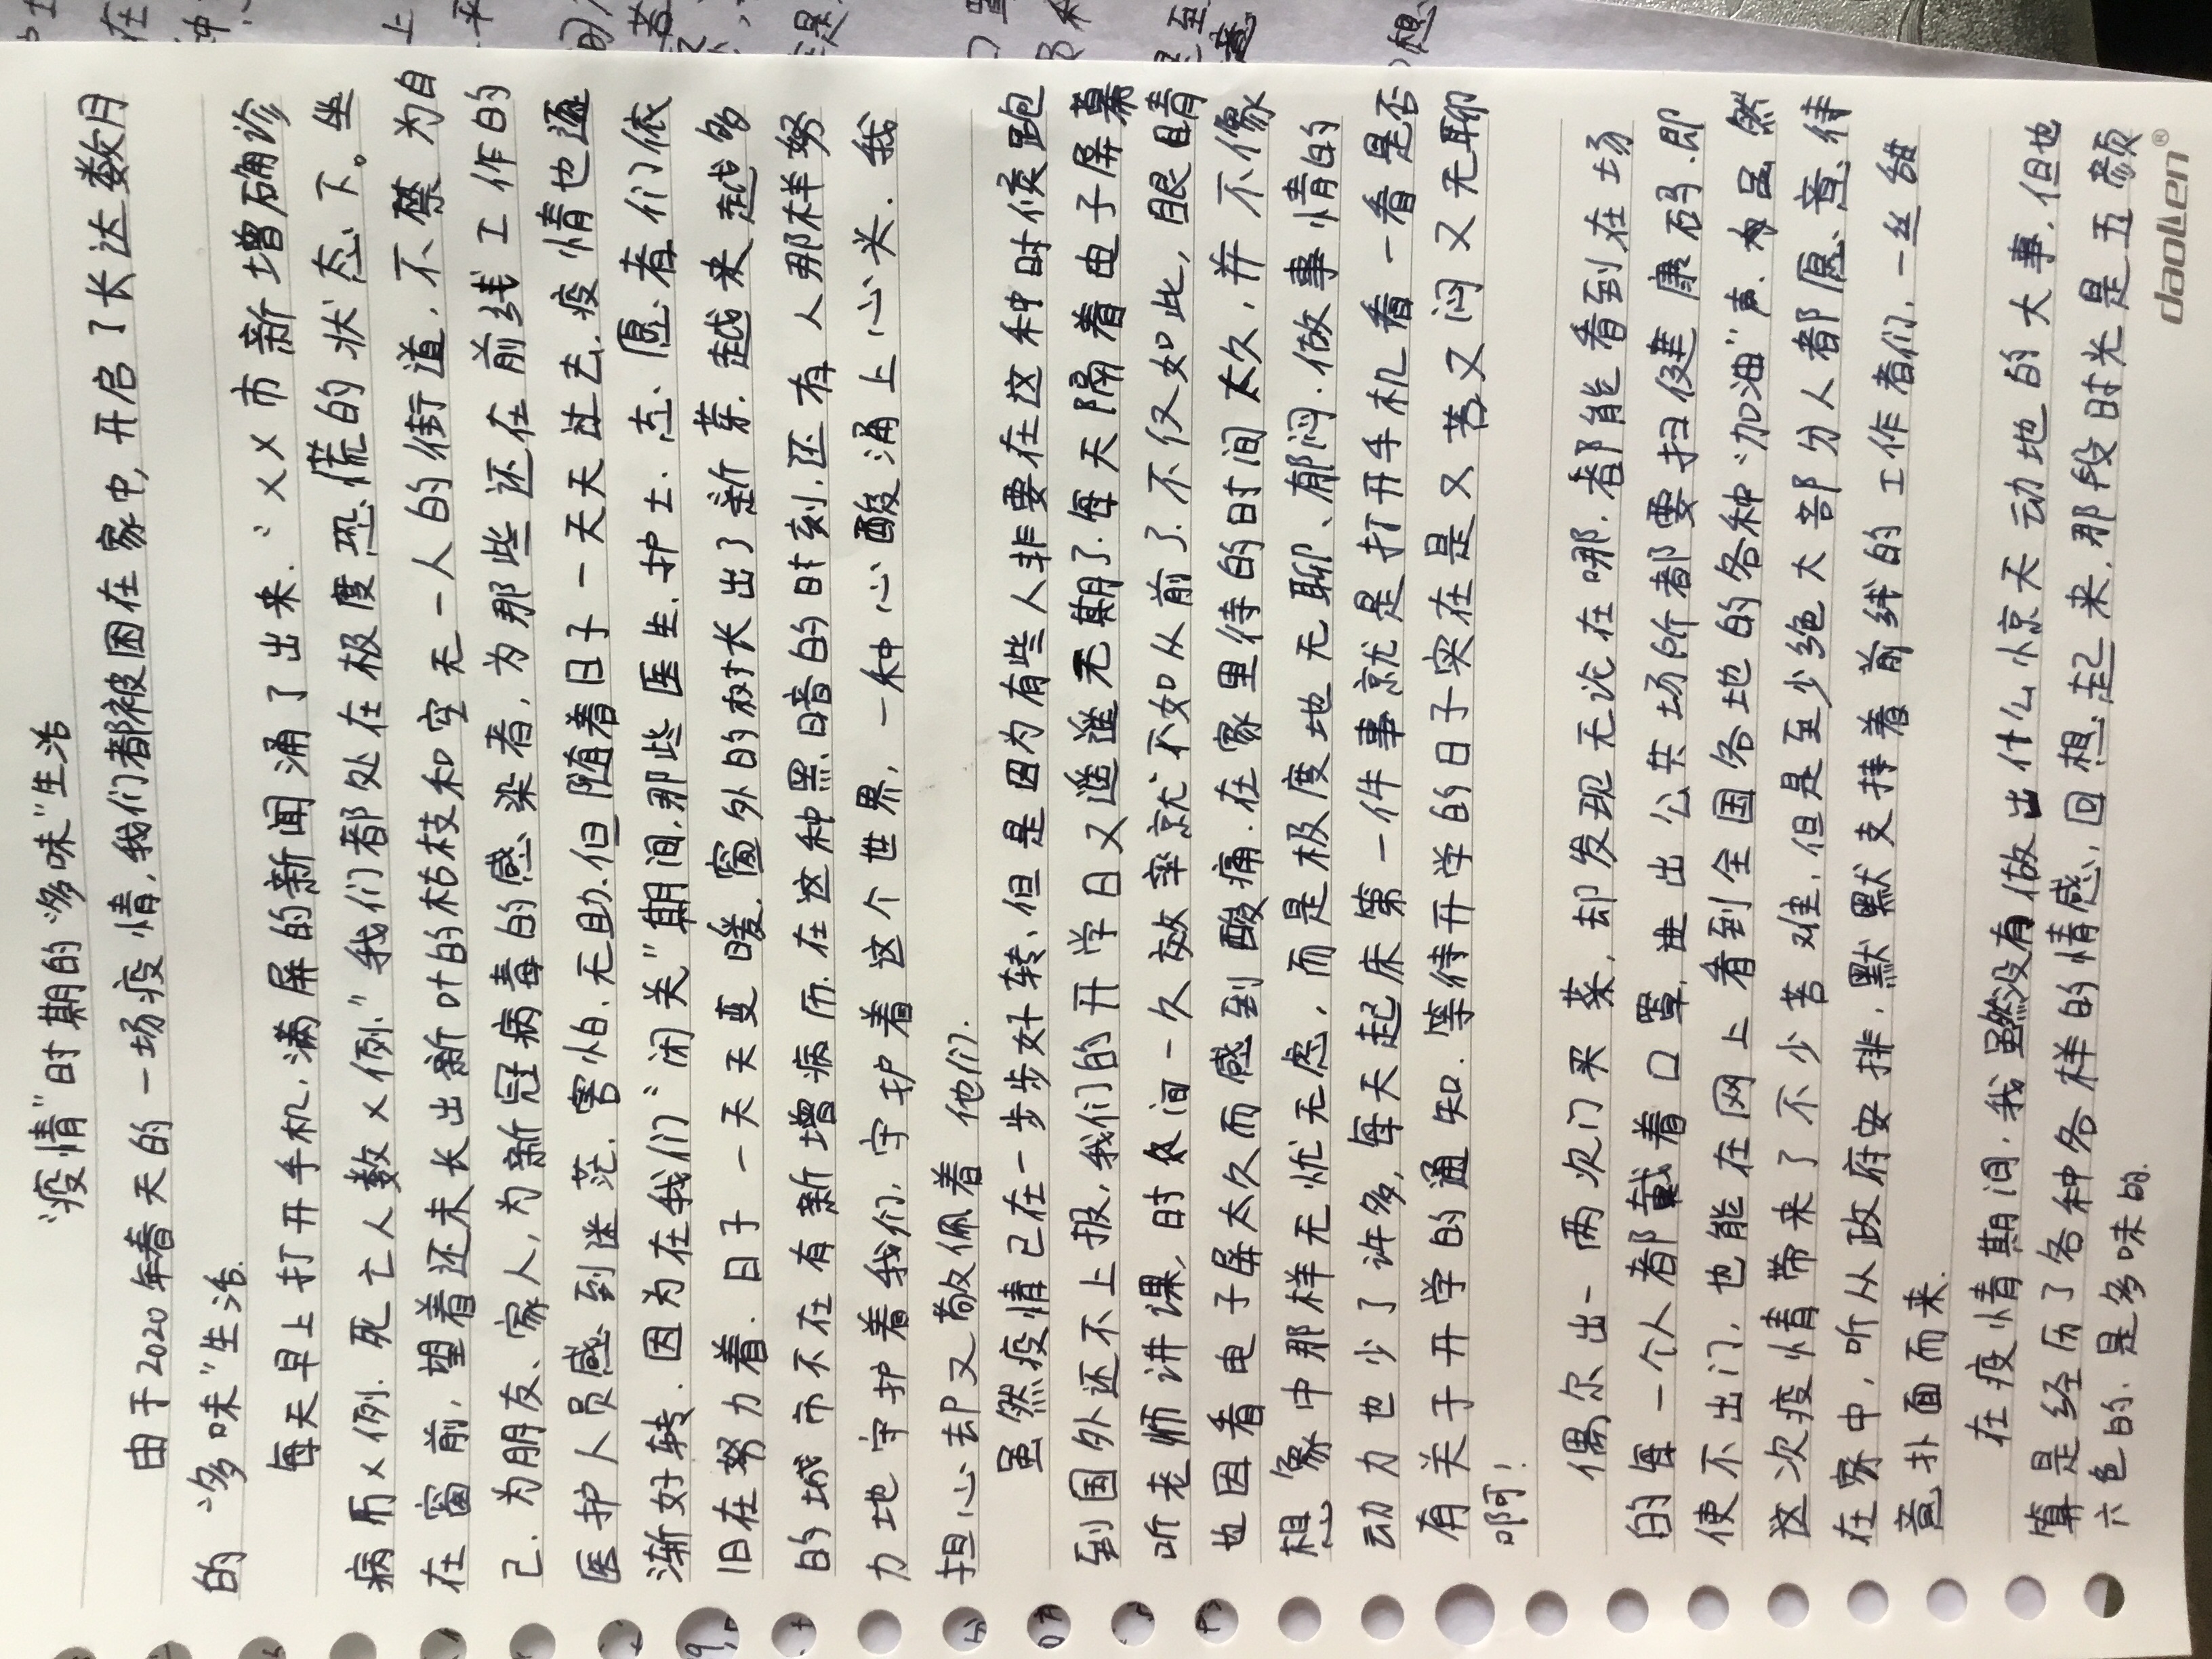 “疫情”时期的“多味”生活
由于2020年春天的一场疫情,我们都被困在家中,开启了长达数月
的“多味”生活.
每天早上打开手机,满屏的新闻涌了出来.“××市新增确诊
病历×例.死亡人数×例.”我们都处在极度恐慌的状态下。坐
在窗前,望着还未长出新叶的枯枝和空无一人的街道,不禁为自
己.为朋友、家人,为新冠病毒的感染者,为那些还在前线工作的
医护人员感到迷茫.害怕.无助.但随着日子一天天过去.疫情也逐
渐好转.因为在我们“闭关”期间,那些医生.护士.志愿者们依
旧在努力着.日子一天天变暖.窗外的树长出了新芽.越来越多
的城市不在有新增病历.在这种黑暗的时刻,还有人那样努
力地守护着我们,守护着这个世界,一种心酸涌上心头.我
担心却又敬佩着他们.
虽然疫情已在一步步好转、但是因为有些人非要在这种时候跑
到国外还不上报,我们的开学日又遥遥无期了.每天隔着电子屏幕
听老师讲课,时间一久效率就不如从前了.不仅如此,眼睛
也因看电子屏太久而感到酸痛.在家里待的时间太久,并不像
想象中那样无忧无虑,而是极度地无聊、郁闷.做事情的
动力也少了许多,每天起床第一件事就是打开手机看一看是否
有关于开学的通知.等待开学的日子实在是又苦又闷又无聊
啊!
偶尔出一两次门买菜,却发现无论在哪.都能看到在场
的每一个人都戴着口罩,进出公共场所都要扫健康码.即
使不出门,也能在网上看到全国各地的各种“加油”声.虽然
这次疫情带来了不少苦难,但是至少绝大部分人都愿意待
在家中,听从政府安排,默默支持着前线的工作者们,一丝甜
意扑面而来.
在疫情期间.我虽然没有做出什么惊天动地的大事.但也
算是经历了各种各样的情感,回想起来,那段时光是五颜
六色的.是多味的.
daolien®